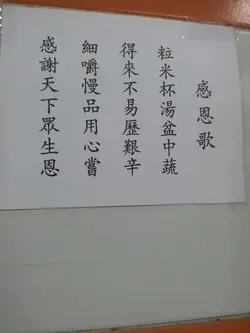 感恩歌
粒米杯湯盆中蔬
得來不易歷艱辛
細嚼慢品用心嘗
感謝天下眾生恩